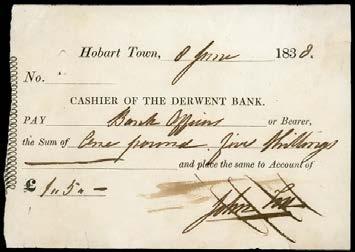 Hobart Town, 8 June 1838.
No.
CASHIER OF THE DERWENT BANK.
PAY Bank Officers or Bearer,
the Sum of One pound five Shillings
and place the same to Account of
£ 1"5"—
John